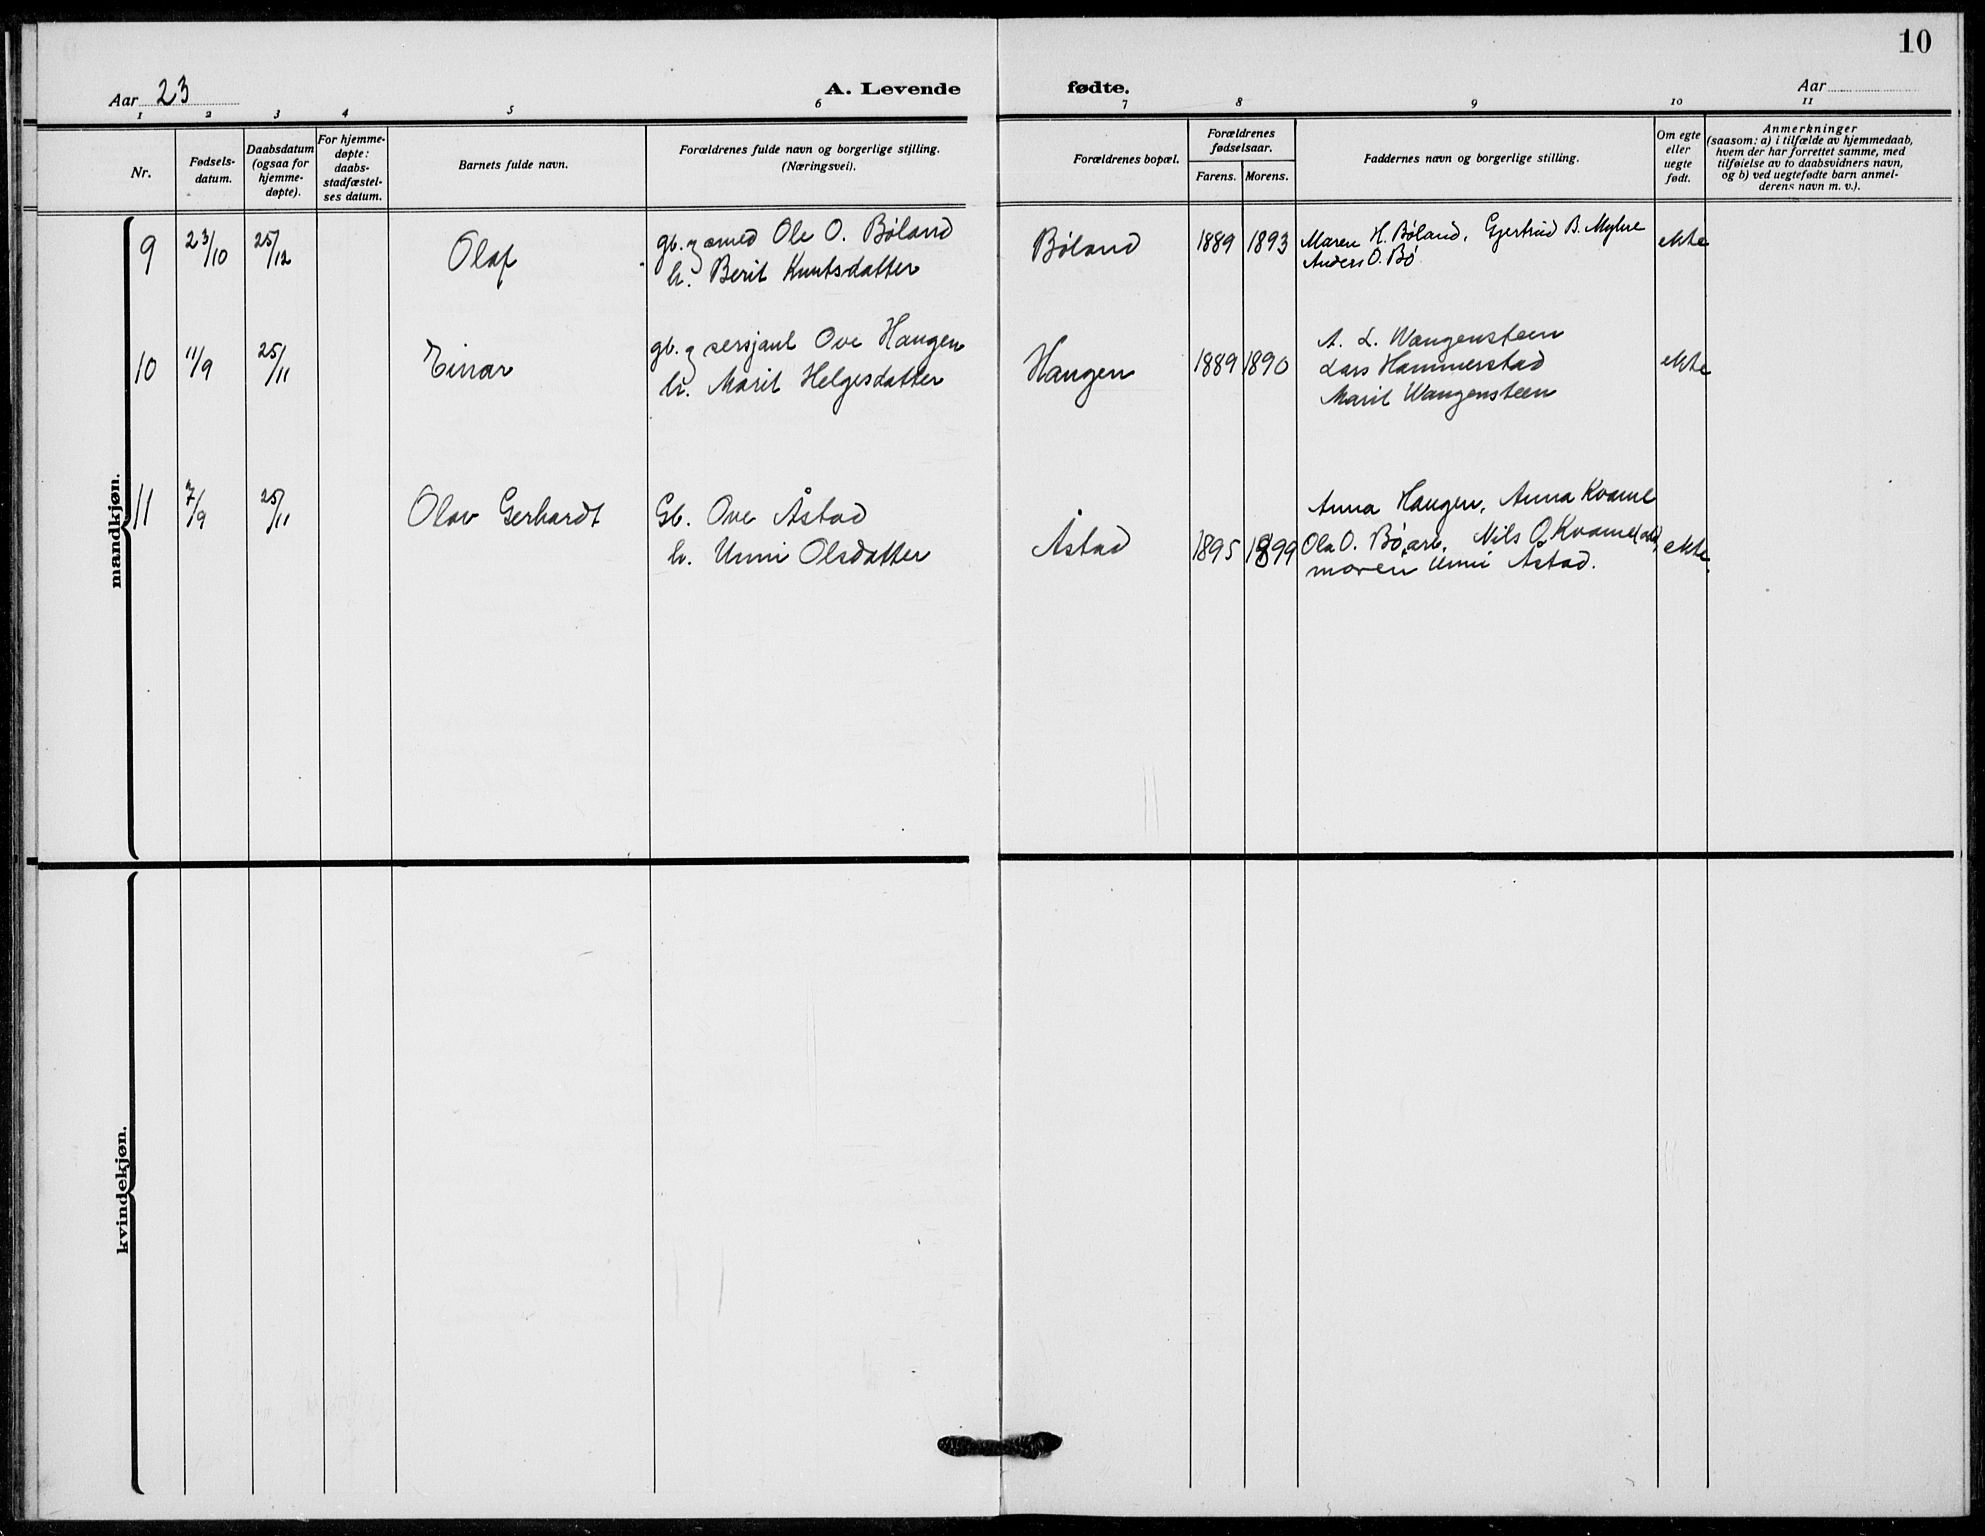 10
Aar 23 A. Levende fødte. Aar
1 2 3 4 5 6 7 8 9 10 11
Nr.
Fødsels-
datum.
Daabsdatum
(ogsaa for
hjemme-
døpte).
For hjemme-
døpte:
daabs-
stadfæstel-
ses datum.
Barnets fulde navn.
Forældrenes fulde navn og borgerlige stilling.
(Næringsvei).
Forældrenes bopæl.
Forældrenes
fødselsaar.
Farens. Morens.
Faddernes navn og borgerlige stilling.
Om egte
eller
uegte
født.
Anmerkninger
(saasom: a) i tilfælde av hjemmedaab,
hvem der har forrettet samme, med
tilføielse av to daabsvidners navn,
og b) ved uegtefødte barn anmel-
derens navn m. v.).
mandkjøn.
9 23/10 25/12 Olaf
gb. og smed Ole O. Bøland
h. Berit Knutsdatter
Bøland 1889 1893
Maren H. Bøland, Gjertrud B. Myhre
Anders O. Bø
ekte
10 11/9 25/11 Einar
gb. og sersjant Ove Haugen
h. Marit Helgesdatter
Haugen 1889 1890
A. L. Wangensteen
Lars Hammerstad
Marit Wangensteen
ekte
11 7/9 25/11 Olav Gerhardt
Gb. Ove Åstad
h. Unni Olsdatter
Åstad 1895 1899
Anna Haugen, Anna Kvame
Ola O. Bø, Nils O. Kvame
moren Unni Åstad.
ekte.
kvindekjøn.